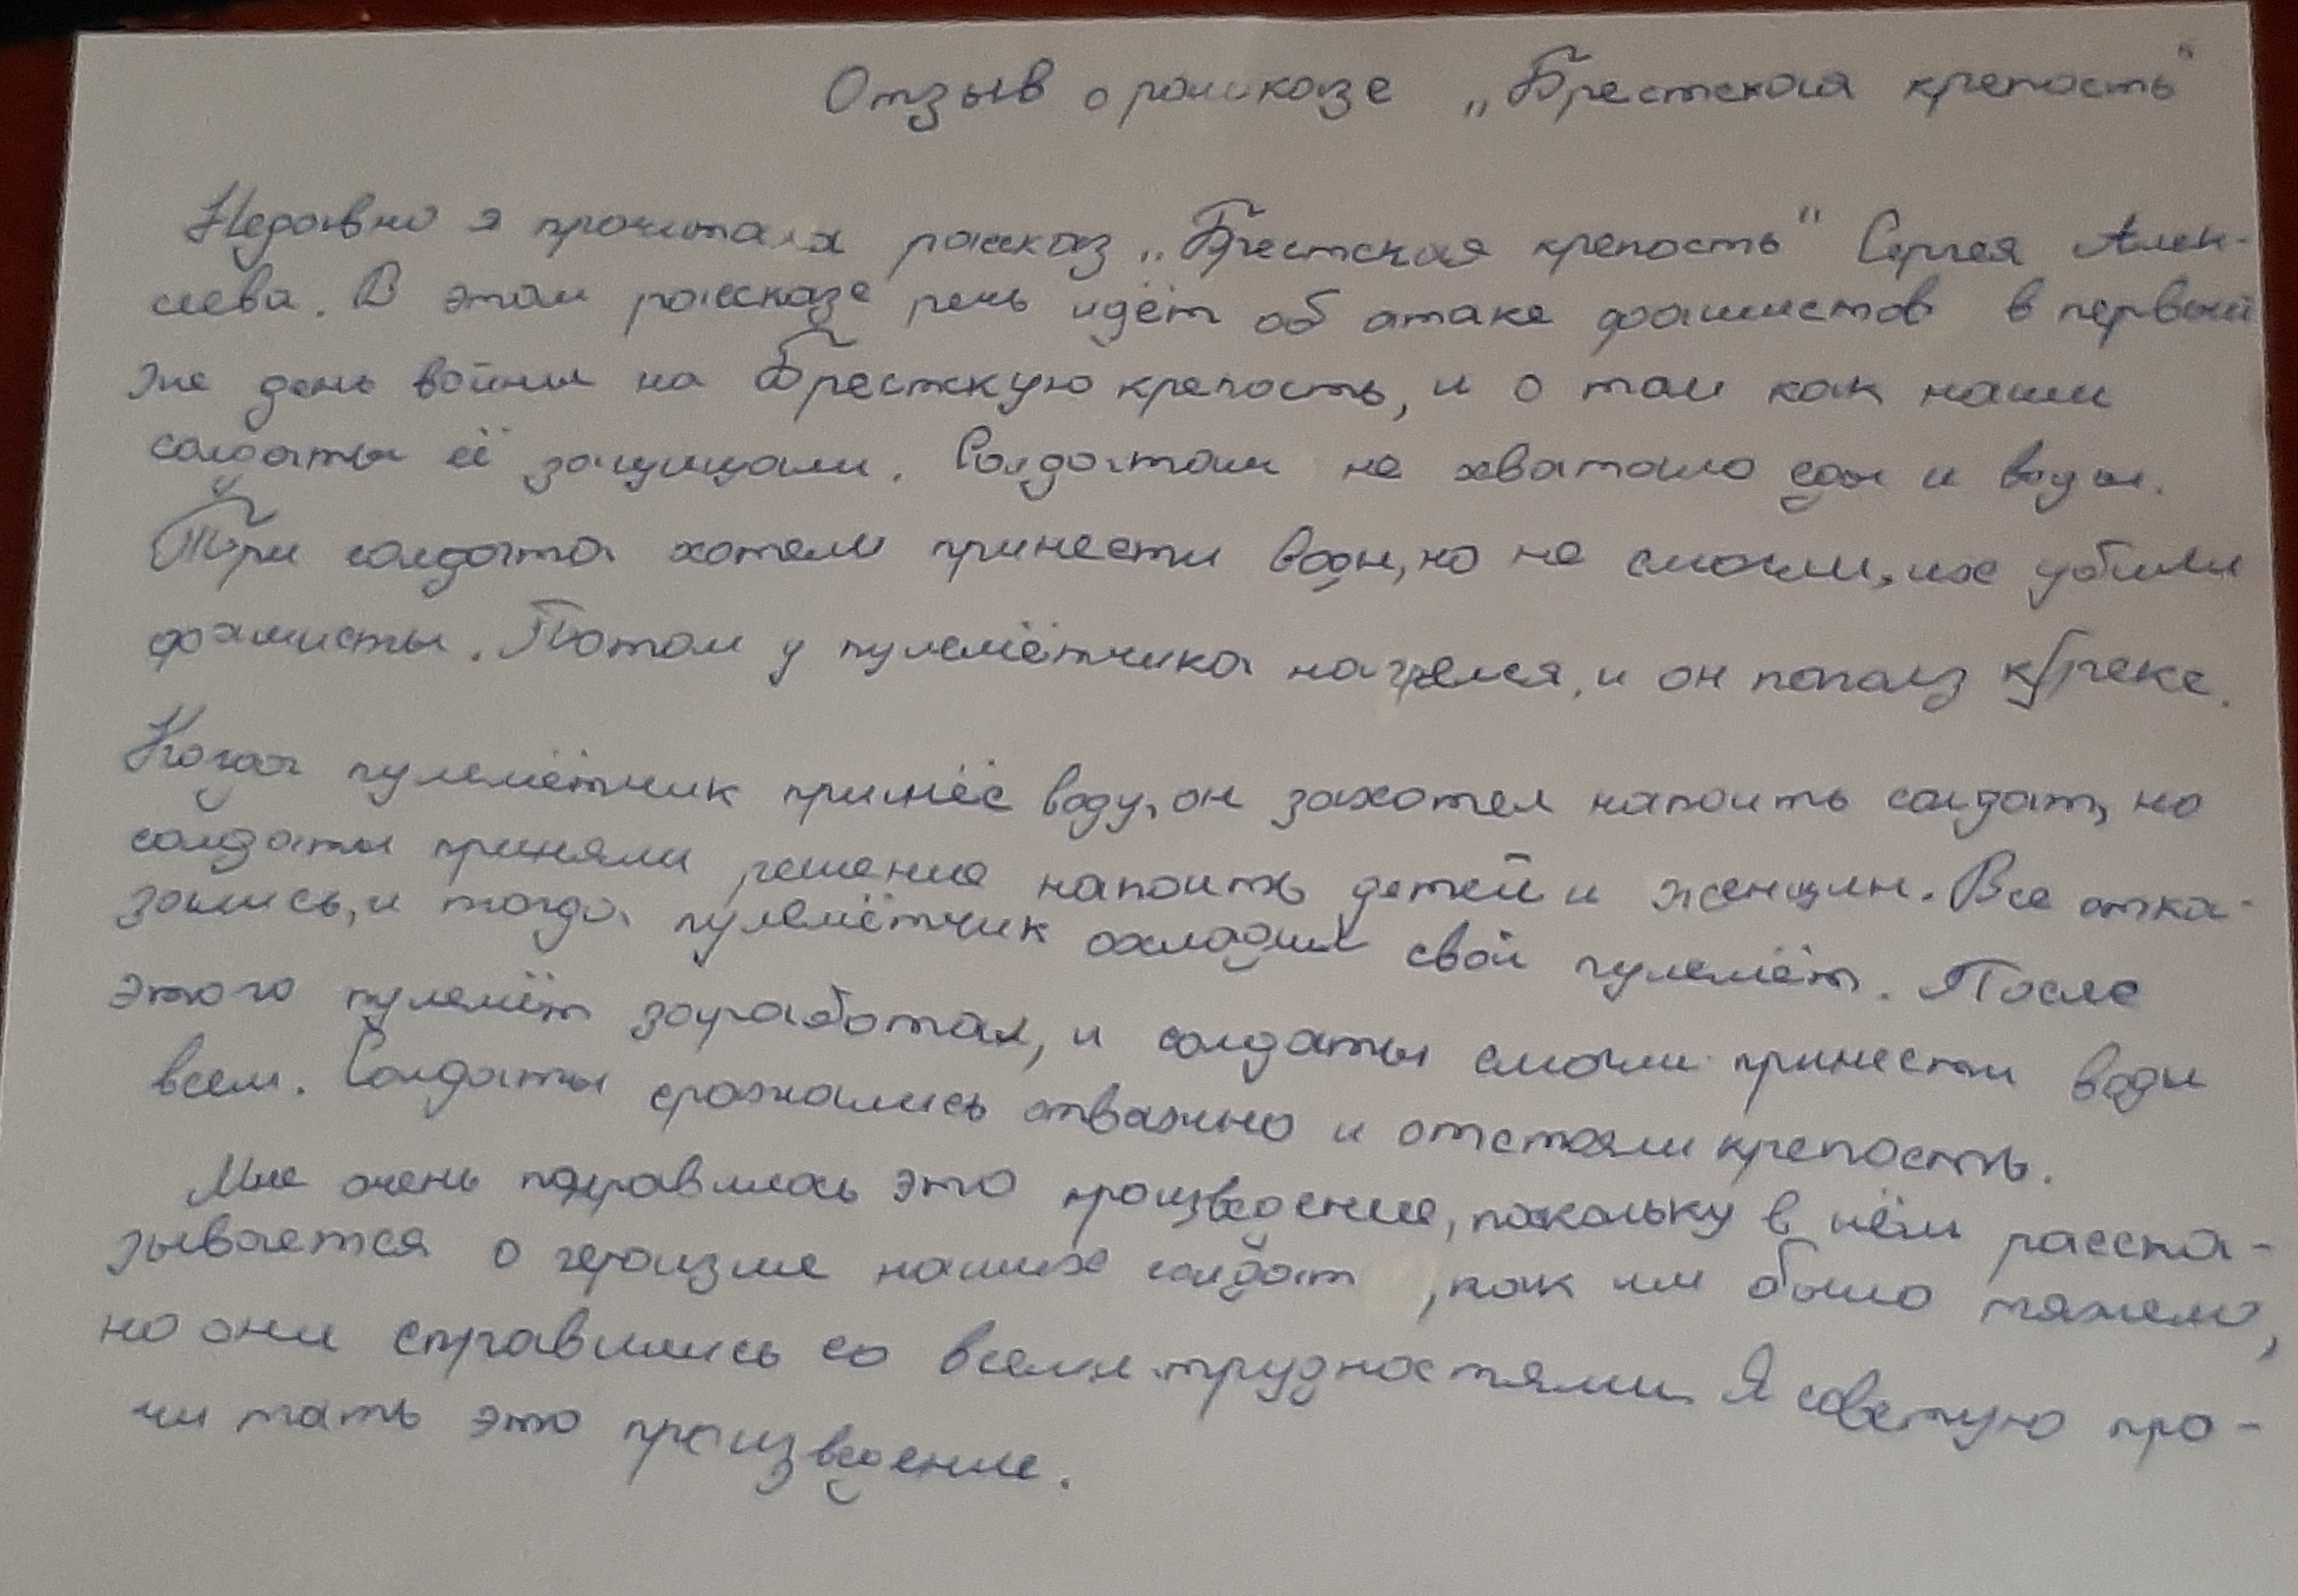 Отзыв о рассказе „Брестская крепость“
Недавно я прочитала рассказ „Брестская крепость“ Сергея Алек-
сеева. В этом рассказе речь идёт об атаке фашистов в первый
же день войны на Брестскую крепость, и о том как наши
солдаты её защищали. Солдатам не хватало еды и воды.
Три солдата хотели принести воды, но не смогли, их убили
фашисты. Потом у пулемётчика нагрелся, и он пополз к реке.
Когда пулемётчик принёс воду, он захотел напоить солдат, но
солдаты приняли решение напоить детей и женщин. Все отка-
зались, и тогда пулемётчик охладил свой пулемёт. После
этого пулемёт заработал, и солдаты смогли принести воды
всем. Солдаты сражались отважно и отстояли крепость.
Мне очень понравилось это произведение, поскольку в нём расска-
зывается о героизме наших солдат, как им было тяжело,
но они справились со всеми трудностями. Я советую про-
читать это произведение.